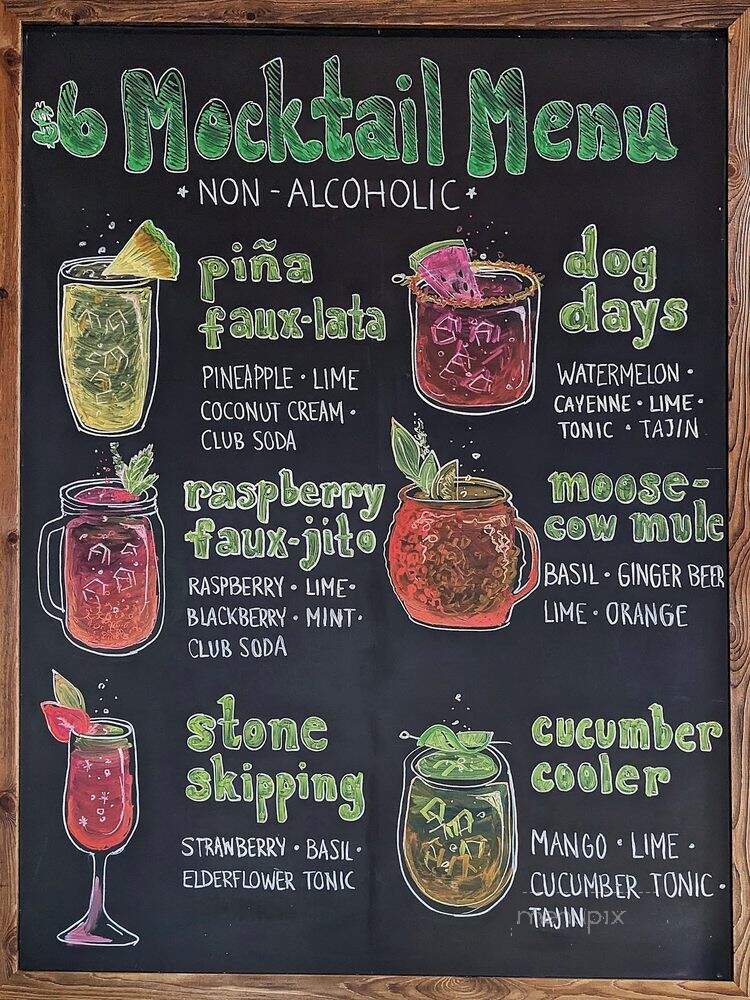 $6 Mocktail Menu
*NON-ALCOHOLIC*
piña
faux-lata
PINEAPPLE · LIME
COCONUT CREAM ·
CLUB SODA
dog
days
WATERMELON ·
CAYENNE · LIME ·
TONIC · TAJIN
raspberry
faux-jito
RASPBERRY · LIME ·
BLACKBERRY · MINT ·
CLUB SODA
moose-
cow mule
BASIL · GINGER BEER
LIME · ORANGE
stone
skipping
STRAWBERRY · BASIL ·
ELDERFLOWER TONIC
cucumber
cooler
MANGO · LIME ·
CUCUMBER TONIC ·
TAJIN
menupix